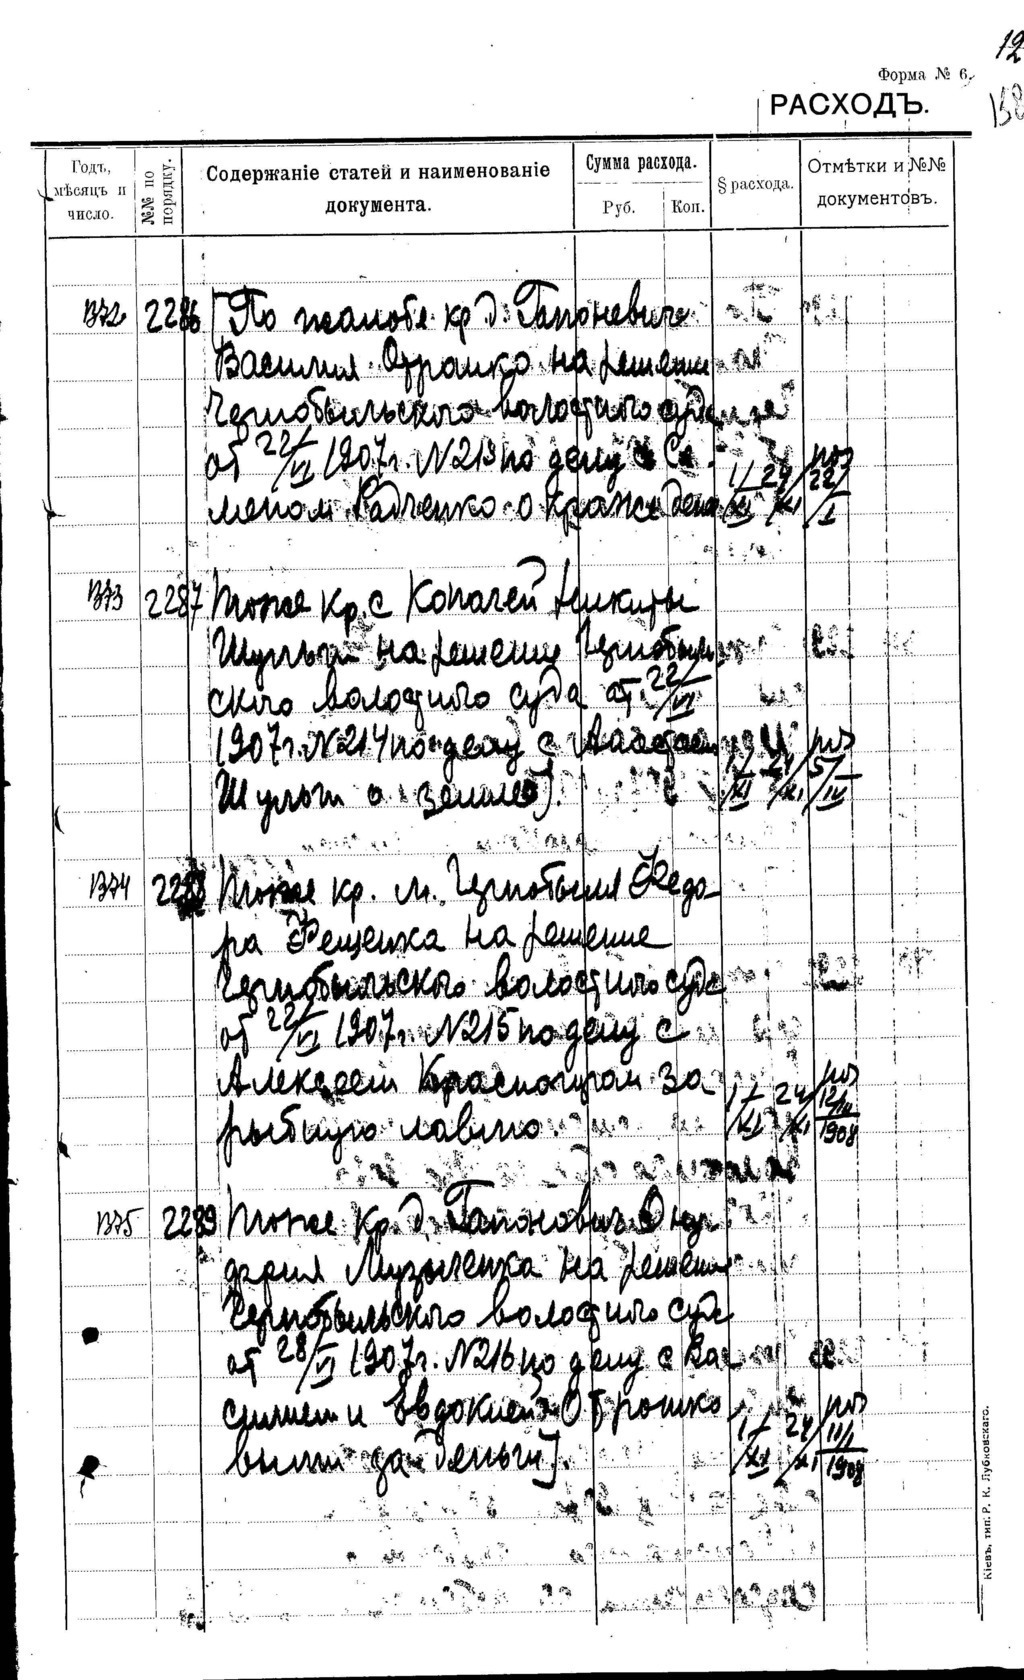 12
Форма № 6.
138
РАСХОДЪ.
Годъ, мѣсяцъ и число.
№№ по порядку.
Содержаніе статей и наименованіе документа.
Сумма расхода.
Руб.
Коп.
§ расхода.
Отмѣтки и №№ документовъ.
1372 2286 [По жалобе кр д.
Василия на решение
Чернобыльского волостного суда
от 22/VI 1907 г. N213 по делу с Се
меном Радченко о краже
1/XI 24/XI 22/I
1373 2287 тоже кр. с Копачей Никиты
на решение Чернобыль
ского волостного суда от 22/VI
1907 г. N214 по делу с
о земле].
1/XI 24/XI 5/IV
1374 2288 тоже кр. м. Чернобыля Федо-
ра Рещенка на решение
Чернобыльского волостного суда
от 22/VI 1907 г. N215 по делу с
Алексеем за
рыбную ловлю.
1/XI 24/XI 12/III 1908
1375 2289 тоже кр. д. Гапонович
Музыченка на решение
Чернобыльского волостного суда
от 28/VI 1907 г. N216 по делу с Ва
силием и Евдокией Отрошко
выми за деньги].
1/XI 24/XI 11/I 1908
Кіевъ, тип. Р. К. Лубковскаго.